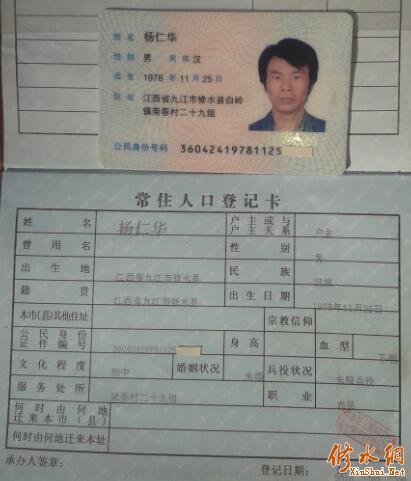 姓名 杨仁华
性别 男 民族 汉
出生 1978年11月25日
住址 江西省九江市修水县白岭
镇荣春村二十九组
公民身份号码 36042419781125
常住人口登记卡
姓名 杨仁华 户主或与户主关系 户主
曾用名 性别 男
出生地 江西省九江市修水县 民族 汉族
籍贯 江西省九江市修水县 出生日期 1978年11月25日
本市(县)其他住址 宗教信仰
公民身份证件编号 36042419781125 身高 血型 不明
文化程度 初中 婚姻状况 未婚 兵役状况 未服兵役
服务处所 荣春村二十九组 职业 农民
何时由何地迁来本市(县)
何时由何地迁来本址
承办人签章: 登记日期:
修水网
XiuShui.Net